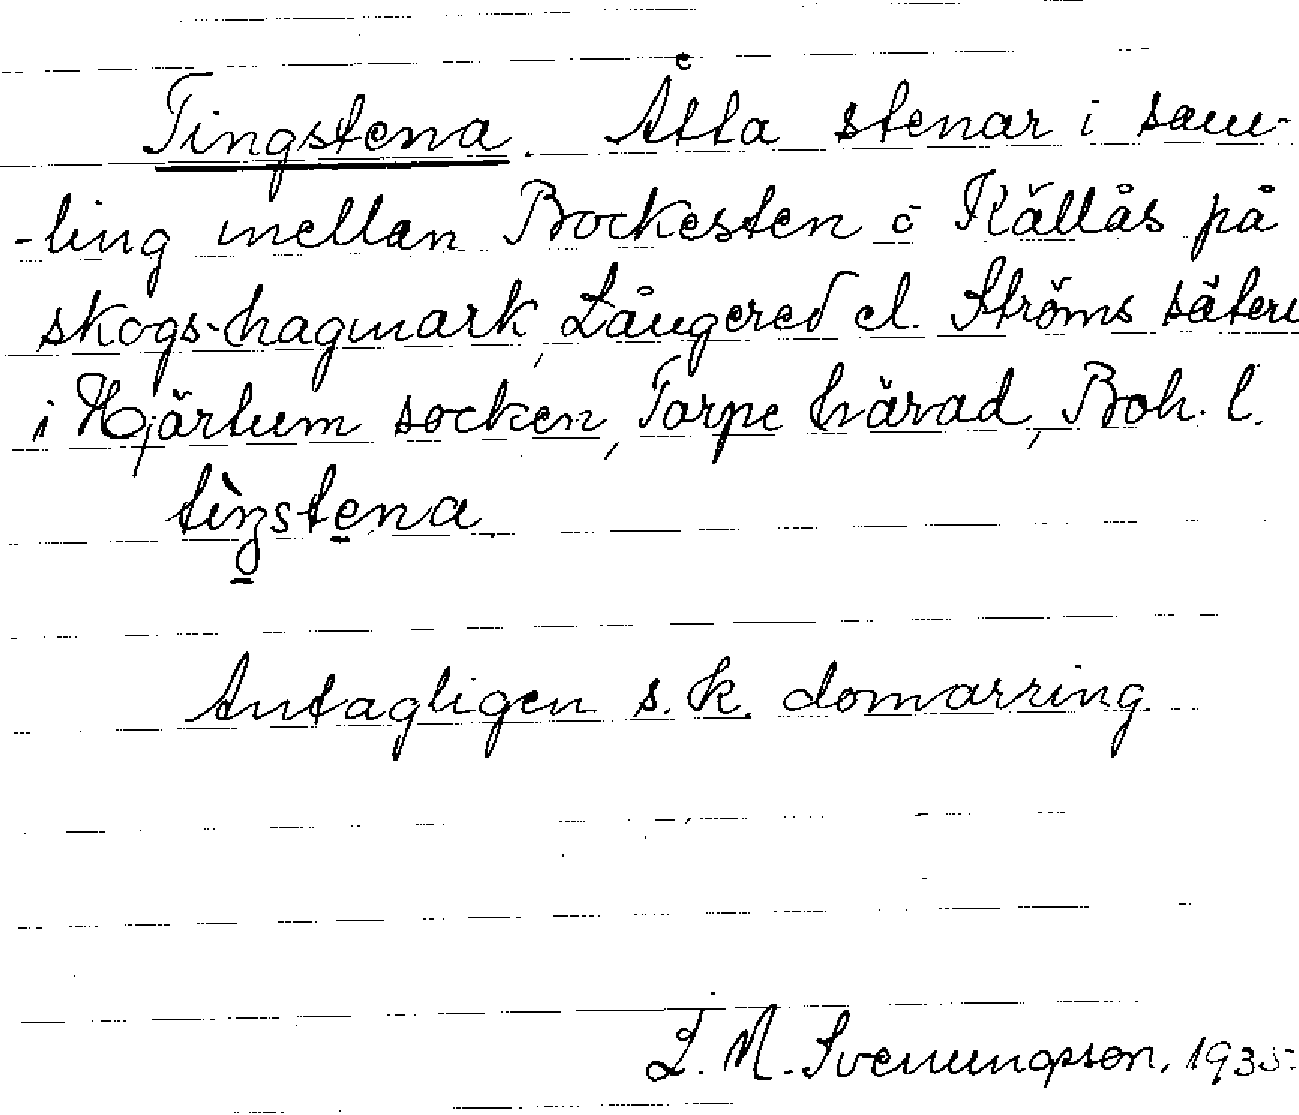 Tingstena. Åtta stenar i sam-
-ling mellan Bockesten o Källås på
skogs-hagmark, Långered el. Ströms säteri
i Hjärtum socken, Torpe härad, Boh. l.
tìŋstena
Antagligen s.k. domarring.
L. M. Svenungsson. 1935.